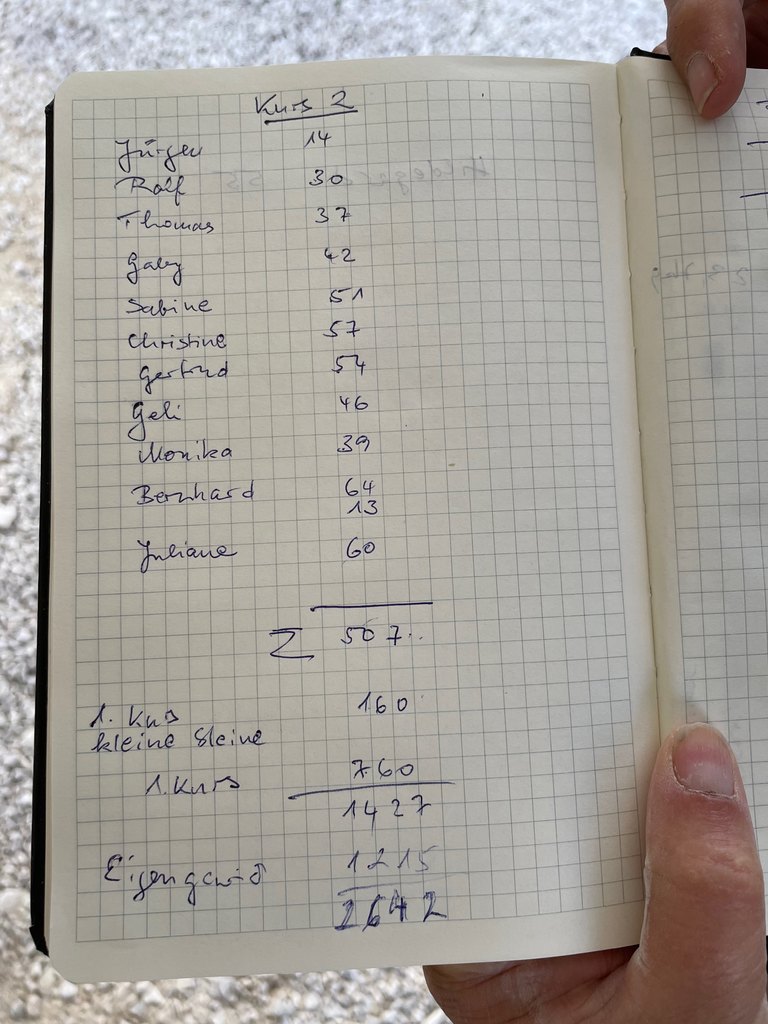 Kurs 2
Jürgen 14
Ralf 30
Thomas 37
Gaby 42
Sabine 51
Christine 57
Gertrud 54
Geli 46
Monika 39
Bernhard 64
13
Juliane 60
Σ 507
1. Kurs 160
kleine Steine
1. Kurs 760
1427
Eigengewicht 1215
2642